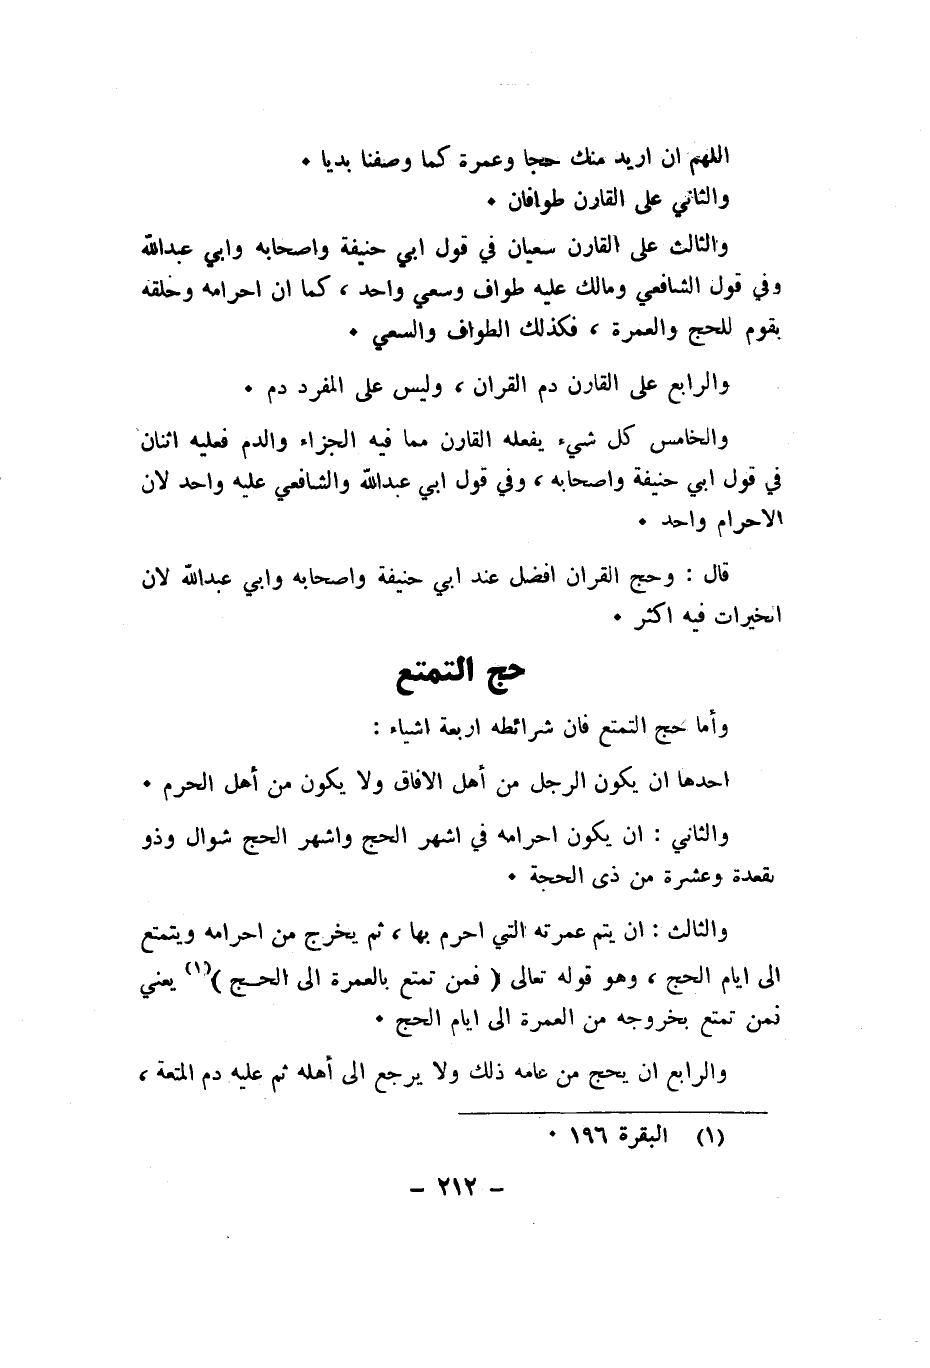 اللهم ان اريد منك حجا وعمرة كما وصفنا بديا •
والثاني على القارن طوافان •
والثالث على القارن سعيان في قول ابي حنيفة واصحابه وابي عبدالله
وفي قول الشافعي ومالك عليه طواف وسعي واحد ، كما ان احرامه وحلقه
يقوم للحج والعمرة ، فكذلك الطواف والسعي •
والرابع على القارن دم القران ، وليس على المفرد دم •
والخامس كل شيء يفعله القارن مما فيه الجزاء والدم فعليه اثنان
في قول ابي حنيفة واصحابه ، وفي قول ابي عبدالله والشافعي عليه واحد لان
الاحرام واحد •
قال : وحج القران افضل عند ابي حنيفة واصحابه وابي عبدالله لان
الخيرات فيه اكثر •
حج التمتع
وأما حج التمتع فان شرائطه اربعة اشياء :
احدها ان يكون الرجل من أهل الافاق ولا يكون من أهل الحرم •
والثاني : ان يكون احرامه في اشهر الحج واشهر الحج شوال وذو
بقعدة وعشرة من ذى الحجة •
والثالث : ان يتم عمرته التي احرم بها ، ثم يخرج من احرامه ويتمتع
الى ايام الحج ، وهو قوله تعالى ( فمن تمتع بالعمرة الى الحــج )(١) يعني
فمن تمتع بخروجه من العمرة الى ايام الحج •
والرابع ان يحج من عامه ذلك ولا يرجع الى أهله ثم عليه دم المتعة ،
(١) البقرة ١٩٦ •
– ٢١٢ –